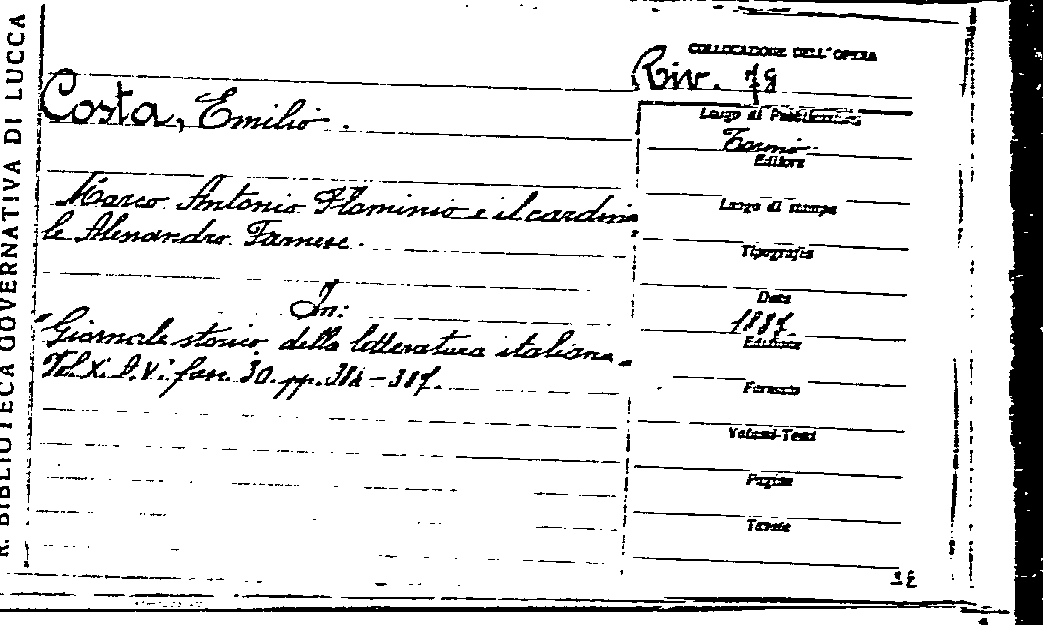 R. BIBLIOTECA GOVERNATIVA DI LUCCA
COLLOCAZIONE DELL'OPERA
Riv. 79
Costa, Emilio.
Marco Antonio Flaminio e il cardina
le Alessandro Farnese.
In:
"Giornale storico della letteratura italiana."
Vol. X. D.V. fasc. 30. pp. 384-387.
Luogo di Pubblicazione
Torino
Editore
Luogo di stampa
Tipografia
Data
1887
Edizione
Formato
Volumi-Tomi
Pagine
Tavole